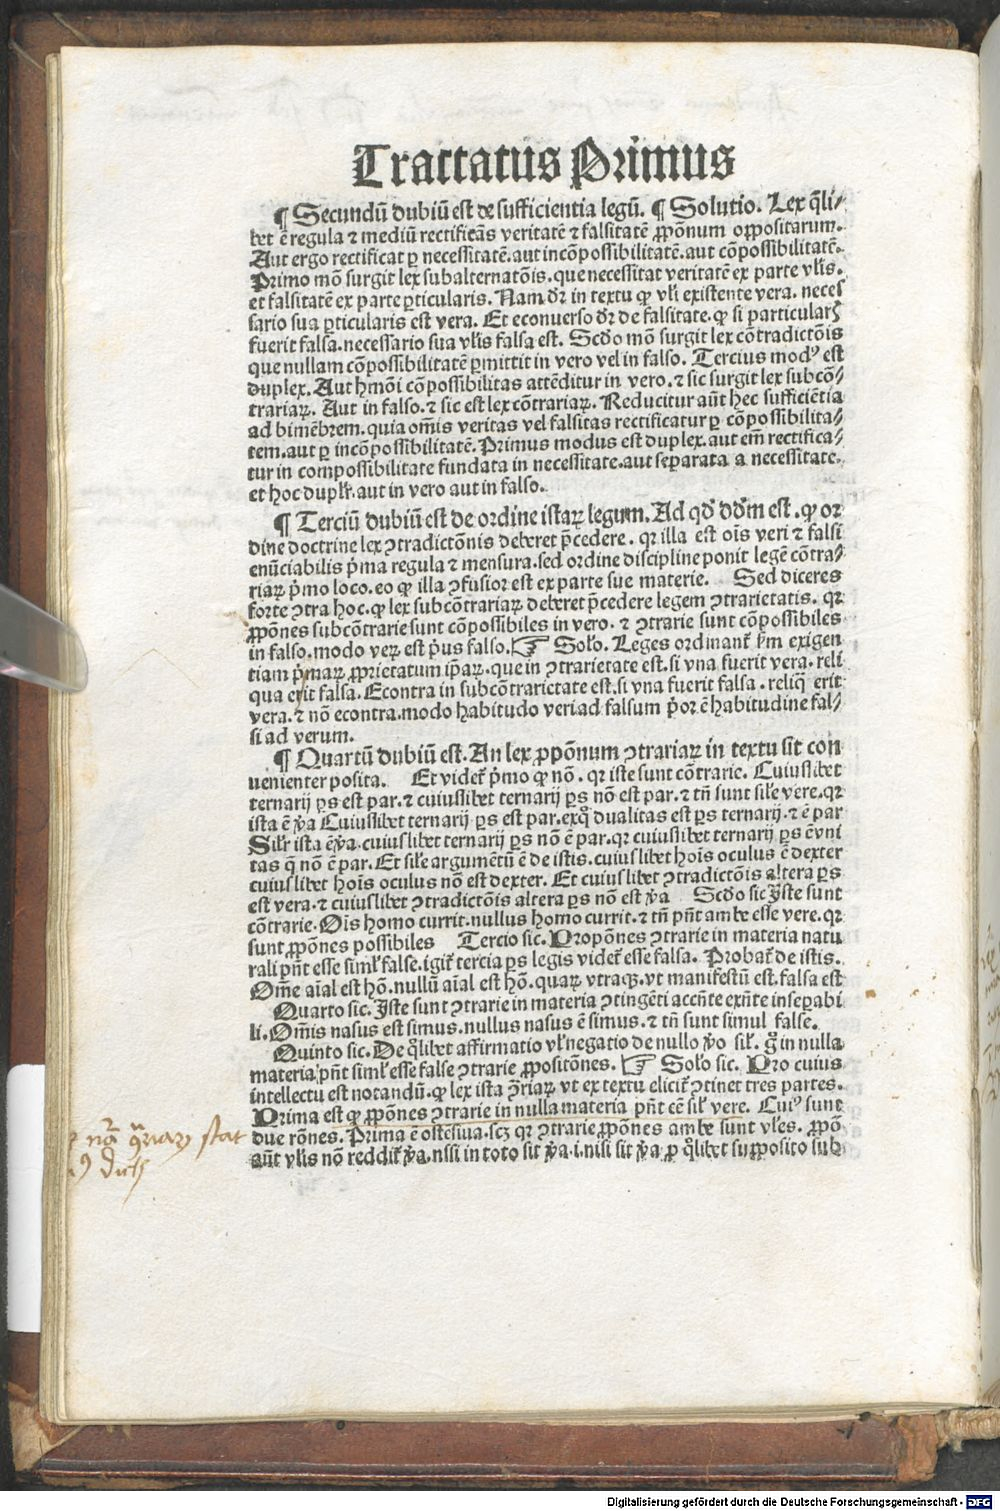 Tractatus Primus
¶ Secundū dubiū est de sufficientia legū. ¶ Solutio. Lex q̄li⸗
bet ē regula ⁊ mediū rectificās veritatē ⁊ falsitatē ꝓpōnum oppositarum.
Aut ergo rectificat ꝑ necessitatē. aut incōpossibilitatē. aut cōpossibilitatē.
Primo mō surgit lex subalternatōis. que necessitat veritatē ex parte vl̄is.
et falsitatē ex parte ꝑticularis. Nam dr̄ in textu ꝙ vl̄i existente vera. neces
sario sua ꝑticularis est vera. Et econuerso dr̄ de falsitate. ꝙ si particularꝭ
fuerit falsa. necessario sua vl̄is falsa est. Scd̄o mō surgit lex cōtradictōis
que nullam cōpossibilitatē ꝑmittit in vero vel in falso. Tercius modꝰ est
duplex. Aut hmōi cōpossibilitas attēditur in vero. ⁊ sic surgit lex subcō⸗
trariaꝝ. Aut in falso. ⁊ sic est lex cōtrariaꝝ. Reducitur aūt hec sufficiētia
ad bimēbrem. quia om̄is veritas vel falsitas rectificatur ꝑ cōpossibilita⸗
tem. aut ꝑ incōpossibilitatē. Primus modus est duplex. aut em̄ rectifica⸗
tur in compossibilitate fundata in necessitate. aut separata a necessitate.
et hoc duplr̄. aut in vero aut in falso.
¶ Terciū dubiū est de ordine istaꝝ legum. Ad qd̄ dd̄m est. ꝙ or
dine doctrine lex ꝯtradictōnis deberet p̄cedere. qꝛ illa est oīs veri ⁊ falsi
enūciabilis p̄ma regula ⁊ mensura. sed ordine discipline ponit legē cōtra⸗
riaꝝ p̄mo loco. eo ꝙ illa ꝯfusior est ex parte sue materie. Sed diceres
forte ꝯtra hoc. ꝙ lex subcōtrariaꝝ deberet p̄cedere legem ꝯtrarietatis. qꝛ
ꝓpōnes subcōtrarie sunt cōpossibiles in vero. ⁊ ꝯtrarie sunt cōpossibiles
in falso. modo veꝝ est p̄us falso. ☞ Solo. Leges ordinant̄ s̄m exigen
tiam p̄maꝝ ꝓprietatum ip̄aꝝ. que in ꝯtrarietate est. si vna fuerit vera. reli
qua erit falsa. Econtra in subcōtrarietate est. si vna fuerit falsa. reliq̄ erit
vera. ⁊ nō econtra. modo habitudo veri ad falsum p̄or ē habitudine fal⸗
si ad verum.
¶ Quartū dubiū est. An lex ꝓpōnum ꝯtrariaꝝ in textu sit con
uenienter posita. Et videt̄ p̄mo ꝙ nō. qꝛ iste sunt cōtrarie. Cuiuslibet
ternarij ꝑs est par. ⁊ cuiuslibet ternarij ꝑs nō est par. ⁊ tn̄ sunt sil̄e vere. qꝛ
ista ē ṽa Cuiuslibet ternarij ꝑs est par. exq̊ dualitas est ꝑs ternarij. ⁊ ē par
Silr̄ ista ē ṽa. cuiuslibet ternarij ꝑs nō ē par. qꝛ cuiuslibet ternarij ꝑs ē vni
tas q̄ nō ē par. Et sil̄e argumētū ē de istis. cuiuslibet hoīs oculus ē dexter
cuiuslibet hoīs oculus nō est dexter. Et cuiuslibet ꝯtradictōis altera ꝑs
est vera. ⁊ cuiuslibet ꝯtradictōis altera ꝑs nō est ṽa Scd̄o sic Iste sunt
cōtrarie. Oīs homo currit. nullus homo currit. ⁊ tn̄ pn̄t ambe esse vere. qꝛ
sunt ꝓpōnes possibiles Tercio sic. Propōnes ꝯtrarie in materia natu
rali pn̄t esse siml̄ false. igit̄ tercia ꝑs legis videt̄ esse falsa. Probat̄ de istis.
Om̄e aīal est hō. nullū aīal est hō. quaꝝ vtraqꝫ. vt manifestū est. falsa est
Quarto sic. Iste sunt ꝯtrarie in materia ꝯtingēti accn̄te exn̄te inseꝑabi
li. Om̄is nasus est simus. nullus nasus ē simus. ⁊ tn̄ sunt simul false.
Quinto sic. De q̊libet affirmatio vl̄ negatio de nullo ṽo sil̄. g̊ in nulla
materia pn̄t siml̄ esse false ꝯtrarie ꝓpositōnes. ☞ Solo sic. Pro cuius
intellectu est notandū. ꝙ lex ista ꝯ̄riaꝝ vt ex textu elicit̄ ꝯtinet tres partes.
Prima est ꝙ ꝓpōnes ꝯtrarie in nulla materia pn̄t eē sil̄ vere. Cuiꝰ sunt
due rōnes. Prima ē ostēsiua. scꝫ qꝛ ꝯtrarie ꝓpōnes ambe sunt vl̄es. ꝓpō
aūt vl̄is nō reddit̄ ṽa. nisi in toto sit ṽa. i. nisi sit ṽa ꝓ q̊libet supposito sub
stat
Digitalisierung gefördert durch die Deutsche Forschungsgemeinschaft - DFG